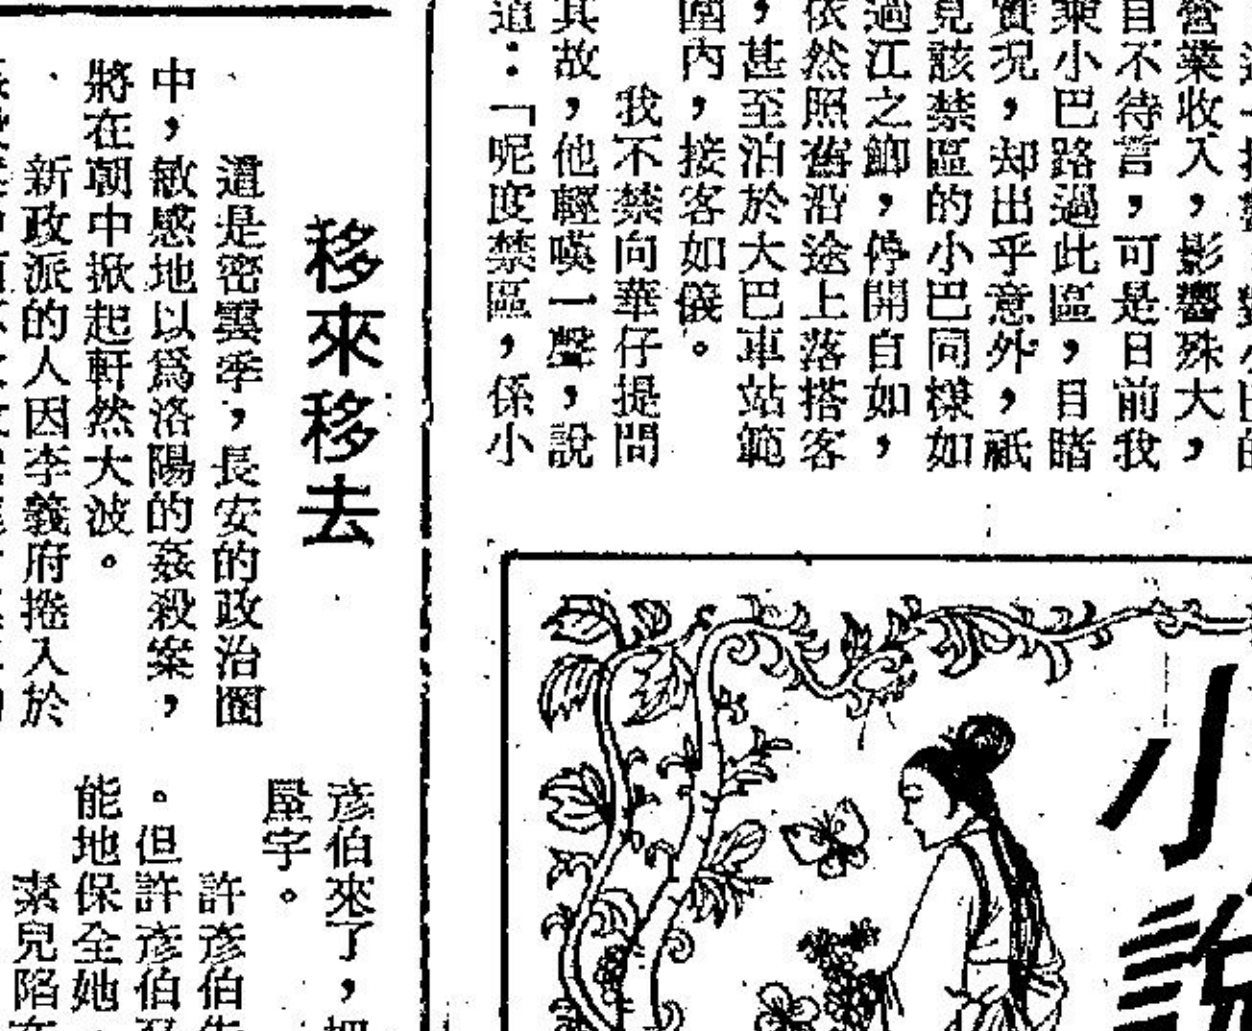 營業收入，影響殊大，
自不待言，可是日前我
乘小巴路過此區，目睹
實況，却出乎意外，祇
見該禁區的小巴同樣如
過江之鯽，停開自如，
依然照舊沿途上落搭客
，甚至泊於大巴車站範
圍內，接客如儀。
我不禁向華仔提問
其故，他輕嘆一聲，說
道：「呢度禁區，係小
小說
移來移去
還是密雲季，長安的政治圈
中，敏感地以爲洛陽的姦殺案，
將在朝中掀起軒然大波。
新政派的人因李義府捲入於
彥伯來了，
屋宇。
許彥伯
。但許彥伯
能地保全她
素兒陷